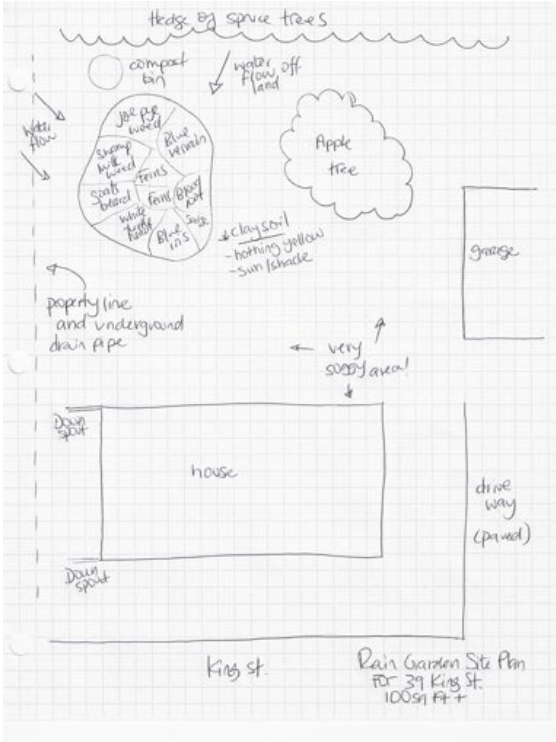 Hedge of spruce trees
compost
bin
water
flow off
land
water
flow
Joe pye
weed
Blue
vervain
Swamp
milk
weed
Ferns
Goats
beard
Ferns
Blood
root
white
turtle
head
Blue
iris
Sedge
clay soil
- nothing yellow
- sun/shade
Apple
tree
garage
property line
and underground
drain pipe
very
soggy area!
Down
spout
house
drive
way
(paved)
Down
spout
King St.
Rain Garden Site Plan
For 39 King St.
100 sq Ft +